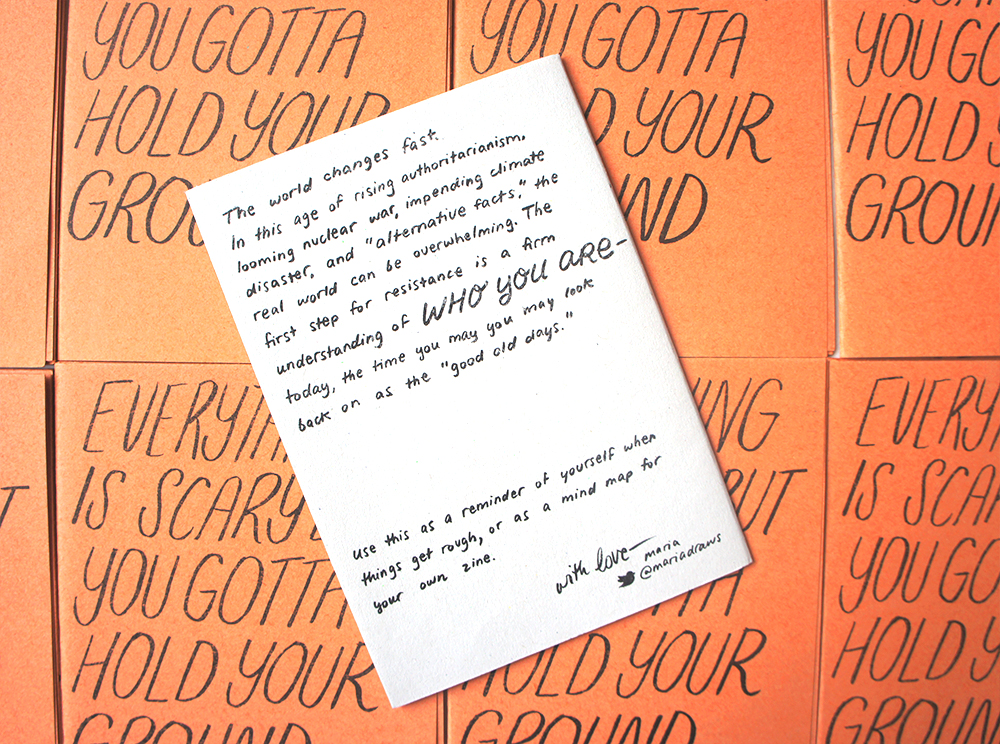 YOU GOTTA
HOLD YOUR
GRO
YOU GOTTA
D YOUR
UND
YOU GO
HOLD YO
GROUN
The world changes fast.
In this age of rising authoritarianism,
looming nuclear war, impending climate
disaster, and "alternative facts," the
real world can be overwhelming. The
first step for resistance is a firm
understanding of WHO YOU ARE-
today, the time you may you may look
back on as the "good old days."
Use this as a reminder of yourself when
things get rough, or as a mind map for
your own zine.
with love—
maria
@mariadraws
EVERYTH
IS SCARY
YOU GOTTA
HOLD YOUR
GROUND
NG
BUT
TTA
HOLD YOUR
GROUND
EVERY
IS SCAR
YOU GO
HOLD YO
GROUN